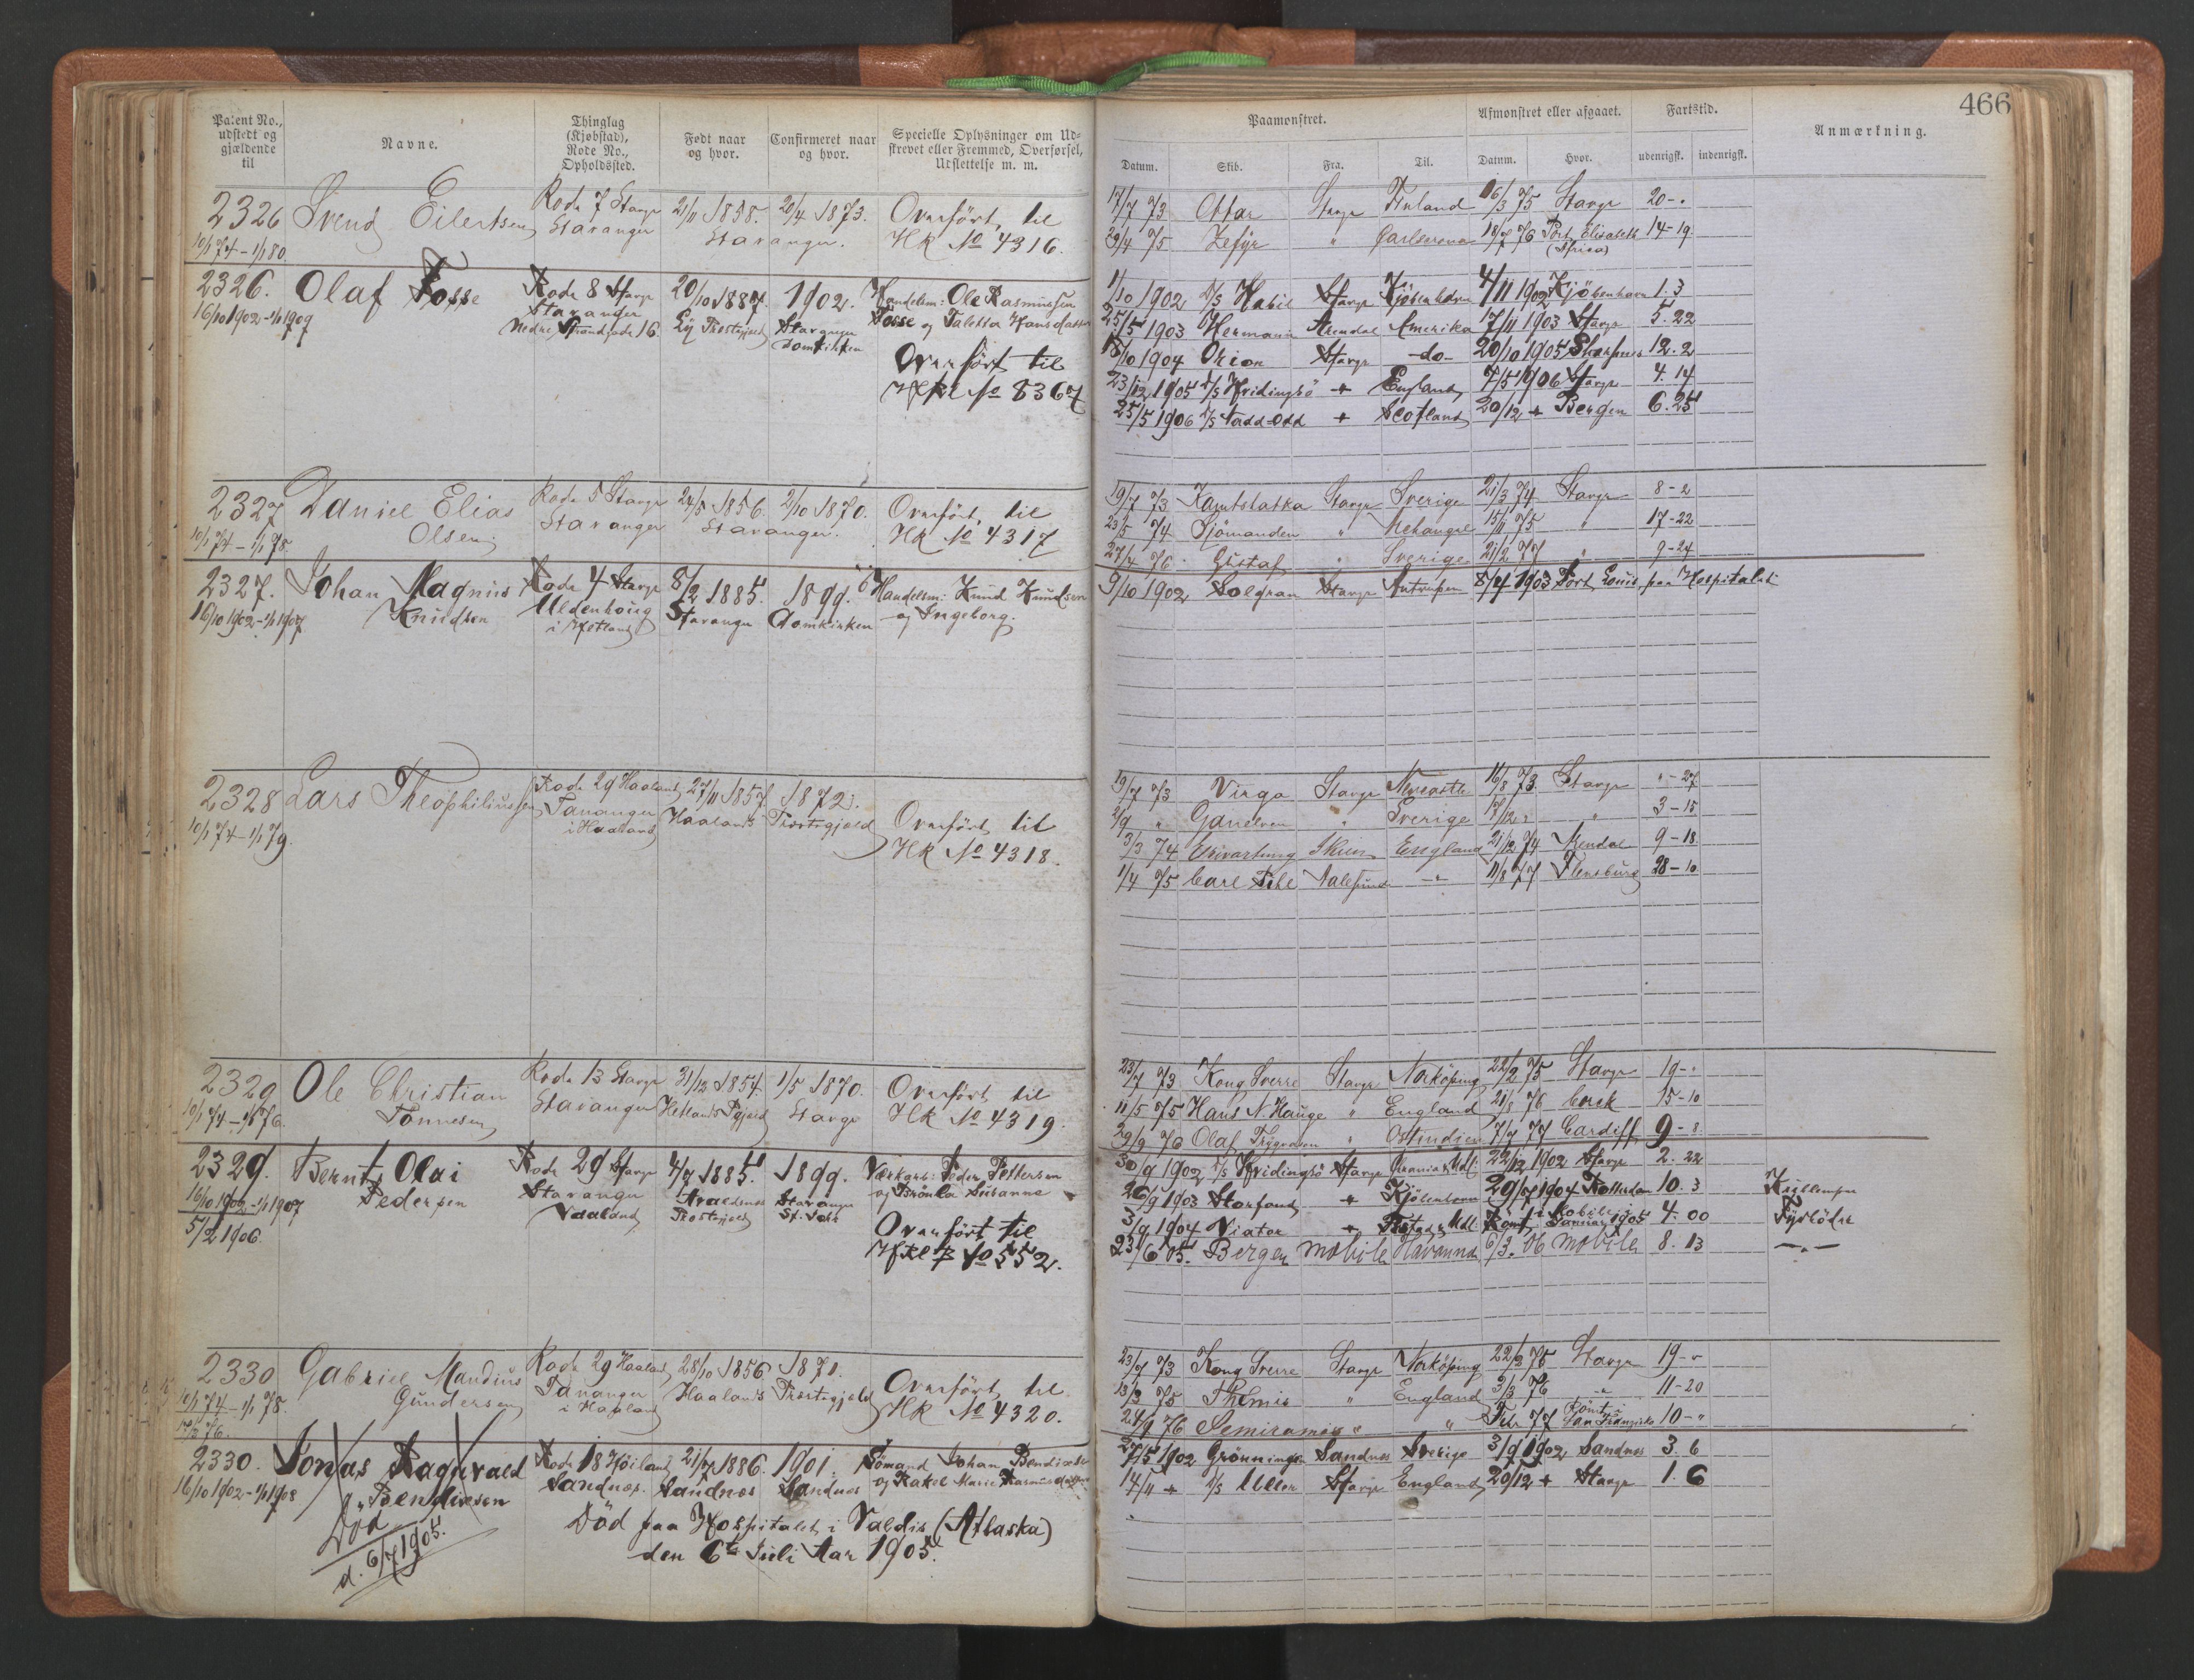 466
Patent No., udstedt og gjældende til
Navne.
Thinglag (Kjøbstad), Rode No., Opholdssted.
Født naar og hvor.
Confirmeret naar og hvor.
Specielle Oplysninger om Udskrevet eller Fremmed, Overførsel, Udslettelse m. m.
Paamønstret.
Afmønstret eller afgaaet.
Fartstid.
Anmærkning.
Datum. Skib. Fra. Til. Datum. Hvor. udenrigsk. indenrigsk.
2326 Svend Eilertsen Rode 7 Stavgr 2/11 1858. 20/4 1873. Overført til
10/1 74 - 1/1 80. Stavanger Stavanger. HR No 4316.
17/7 73 Ottar Stavgr Finland 16/3 75 Stavgr 20-"
29/4 75 Zefyr " Carlscrona 18/7 76 Port Elisabeth 14-19
(Africa)
2326. Olaf Fosse Rode 8 Stavgr 20/10 1887. 1902. Handelsm: Ole Rasmussen
16/10 1902 - 1/1 1909 Stavanger Stavanger Fosse og Taletta Hansdatter
Nedre Strandgade 16. Domkirken
Overført til
HRl No 8367
11/10 1902 D/S Habil Stavgr Kjøbenhavn 4/11 1902 Kjøbenhavn 1.3
25/5 1903 Hermann Arendal Amerika 17/11 1903 Stavgr 5.22
18/10 1904 Orion Stavgr -do- 20/10 1905 12.2
23/12 1905 D/S Hvidingsö + England 7/5 1906 Stavgr 4.14
25/5 1906 D/S Nadd-Odd + Scotland 20/12 + Bergen 6.25
2327 Daniel Elias Rode 5 Stavgr 24/5 1856. 2/10 1870. Overført til
10/1 74 - 1/1 78. Olsen Stavanger Stavanger. HR No 4317
19/7 73 Kamtslatka Stavgr Sverige 21/3 74 Stavgr 8-2
23/5 74 Sjömanden " 15/11 75 " 17-22
27/4 76. Gustaf " Sverige 21/2 77 " 9-24
2327. Johan Magnus Rode 4 Stavgr 8/2 1885. 1899. Handelsm: Knud Knudsen
16/10 1902 - 1/1 1907 Knudsen Uldenhoug Stavanger Domkirken og Ingeborg.
i Hetland
9/10 1902 Solgran Stavgr Antwerpen 8/4 1903 Port Louis paa Hospitalet
2328 Lars Theophiliussen Rode 29 Haaland 27/11 1857 1872. Overført til
10/1 74 - 1/1 79. Tananger Haalands Præstegjæld HR No 4318.
i Haaland
19/7 73 Virgo Stavgr Newcastle 16/8 73 Stavgr "-27
2/9 " Ganelven " Sverige 17/12 " " 3-15
3/3 74 Skien England 21/12 74 Arendal 9-18
1/4 75 Carl Aalesund -"- 11/8 77 Flensburg 28-10
2329 Ole Christian Rode 13 Stavgr 31/12 1854. 1/5 1870. Overført til
10/1 74 - 1/1 76. Tönnesen Stavanger Hetlands Pgjæld Stavgr HR No 4319.
23/7 73 Kong Sverre Stavgr Norköping 22/2 75 Stavgr 19-"
11/5 75 Hans N. Hauge " England 21/8 76 Cork 15-10
29/9 76 Olaf Trygvason " Ostindien 7/7 77 Cardiff 9-8
2329. Bernt Olai Rode 29 Stavgr 4/7 1885. 1899. Værkgut: Peder Pettersen
16/10 1902 - 1/1 1907 Pedersen Stavanger Stavanger og Susanne
5/2 1906. Vaaland Præstegjæld St. Joh.
Overført til
HRl No 552.
30/9 1902 D/S Hvidingsö Stavgr Udl: 22/12 1902 Stavgr 2.22
26/9 1903 Storfond + Kjöbenhavn 29/7 1904 Rotterdam 10.3
3/9 1904 Viator + & Udl. Rømt i Mobile Januar 1905 4.00 Fyrbödr
23/6 05. Bergen Mobile Havanna 6/3. 06 Mobile 8.13 -"-
2330 Gabriel Mandius Rode 29 Haaland 28/10 1856. 1871. Overført til
10/1 74 - 1/1 78. Gundersen Tananger Haalands Præstegjæld HR No 4320.
i Haaland
23/7 73 Kong Sverre Stavgr Norköping 22/2 75 Stavgr 19-"
13/3 75 Themis " England 3/3 76 -"- 11-20
24/9 76 Semiramis " " Febr 77 Rømt i San Franzisko 10-"
2330. Jonas Ragnvald Rode 18 Höiland 21/7 1886. 1901. Sömand Johan Bendixsen
16/10 1902 - 1/1 1908 Bendixsen Sandnes. Sandnes Sandnes og Rakel Marie Rasmusdatter
Död Död paa Hospitalet i Valdis (Atlaska)
d. 6/7 1905. den 6te Juli Aar 1905.
27/5 1902 Grönningen Sandnes Sverige 3/9 1902 Sandnes 3.6
14/11 + D/S Uller Stavgr England 20/12 + Stavgr 1.6